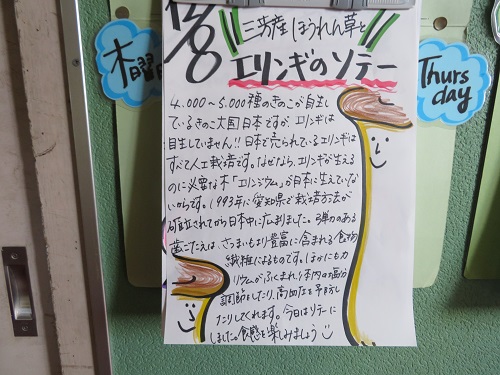 12/8
三芳産ほうれん草と
エリンギのソテー
木曜
Thurs
day
4,000〜5,000種のきのこが自生し
ているきのこ大国日本ですが、エリンギは
自生していません!!日本で売られているエリンギは
すべて人工栽培です。なぜなら、エリンギが生える
のに必要な木「エリンジウム」が日本に生えていな
いからです。1993年に愛知県で栽培方法が
確立されてから日本中に広まりました。弾力のある
歯ごたえは、さつまいもより豊富に含まれる食物
繊維によるものです。ほかにもカ
リウムがふくまれ、体内の塩分
調節をしたり、高血圧を予防し
たりしてくれます。今日はソテーに
しました。食感を楽しみましょう